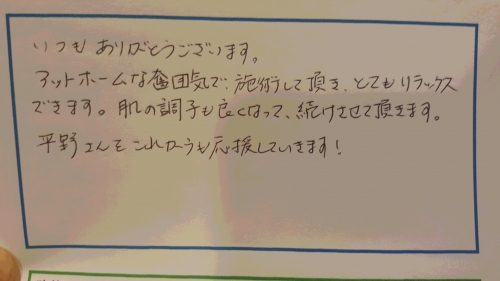 いつもありがとうございます。
アットホームな奮囲気で、施術して頂き、とてもリラックス
できます。肌の調子も良くなって、続けさせて頂きます。
平野さんをこれからも応援していきます!